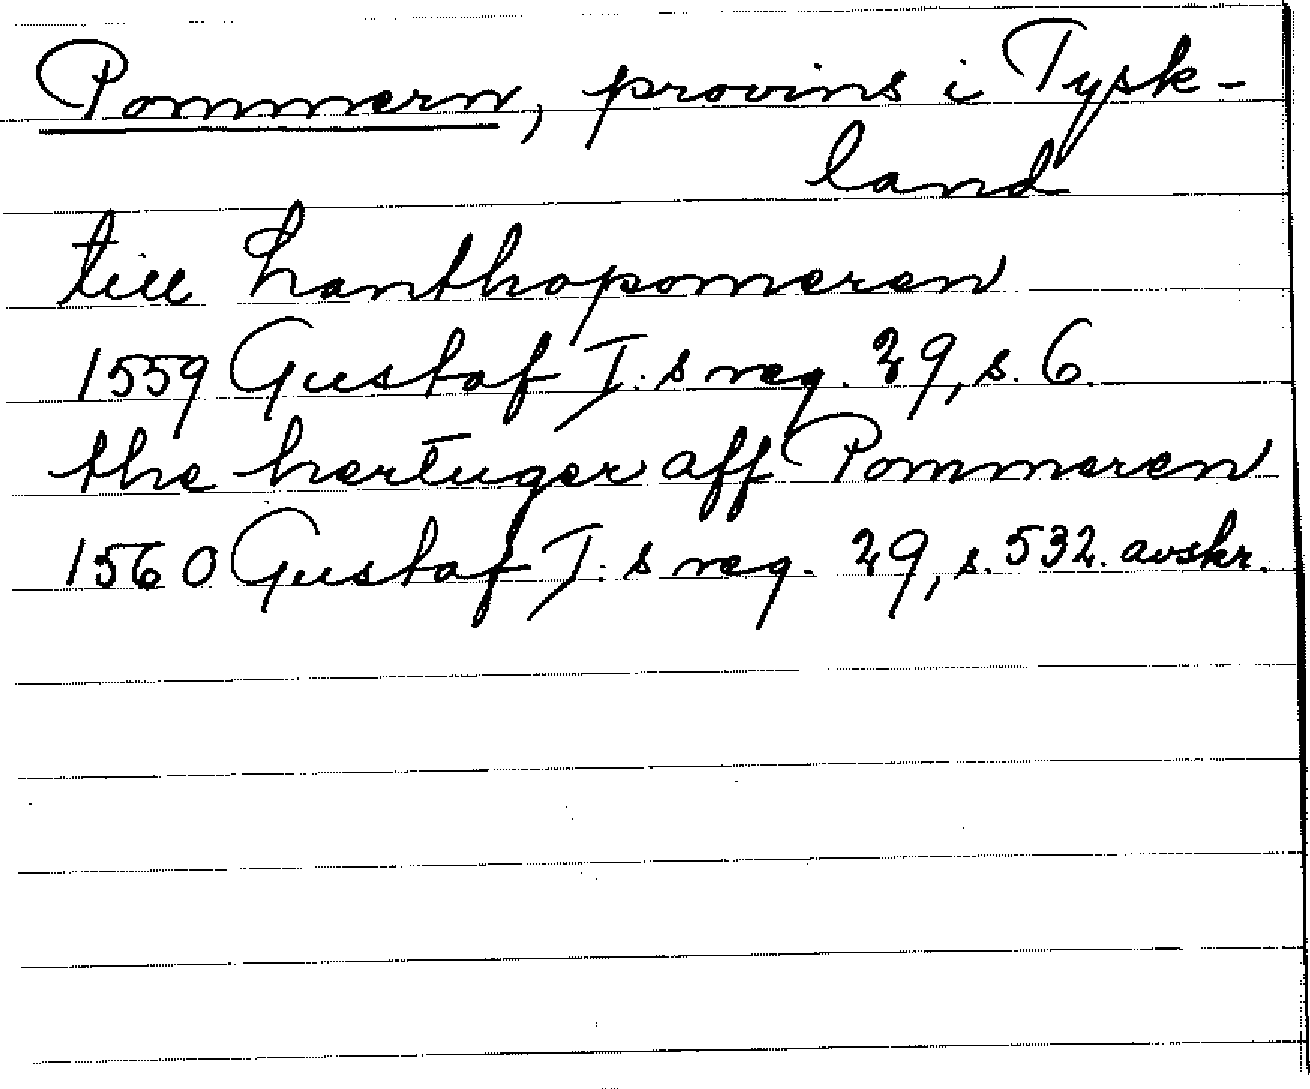 Pommern, provins i Tysk-
land
till hanthopomeren
1559 Gustaf I:s reg. 29, s. 6.
the hertuger aff Pommeren
1560 Gustaf I:s reg. 29, s. 532. avskr.